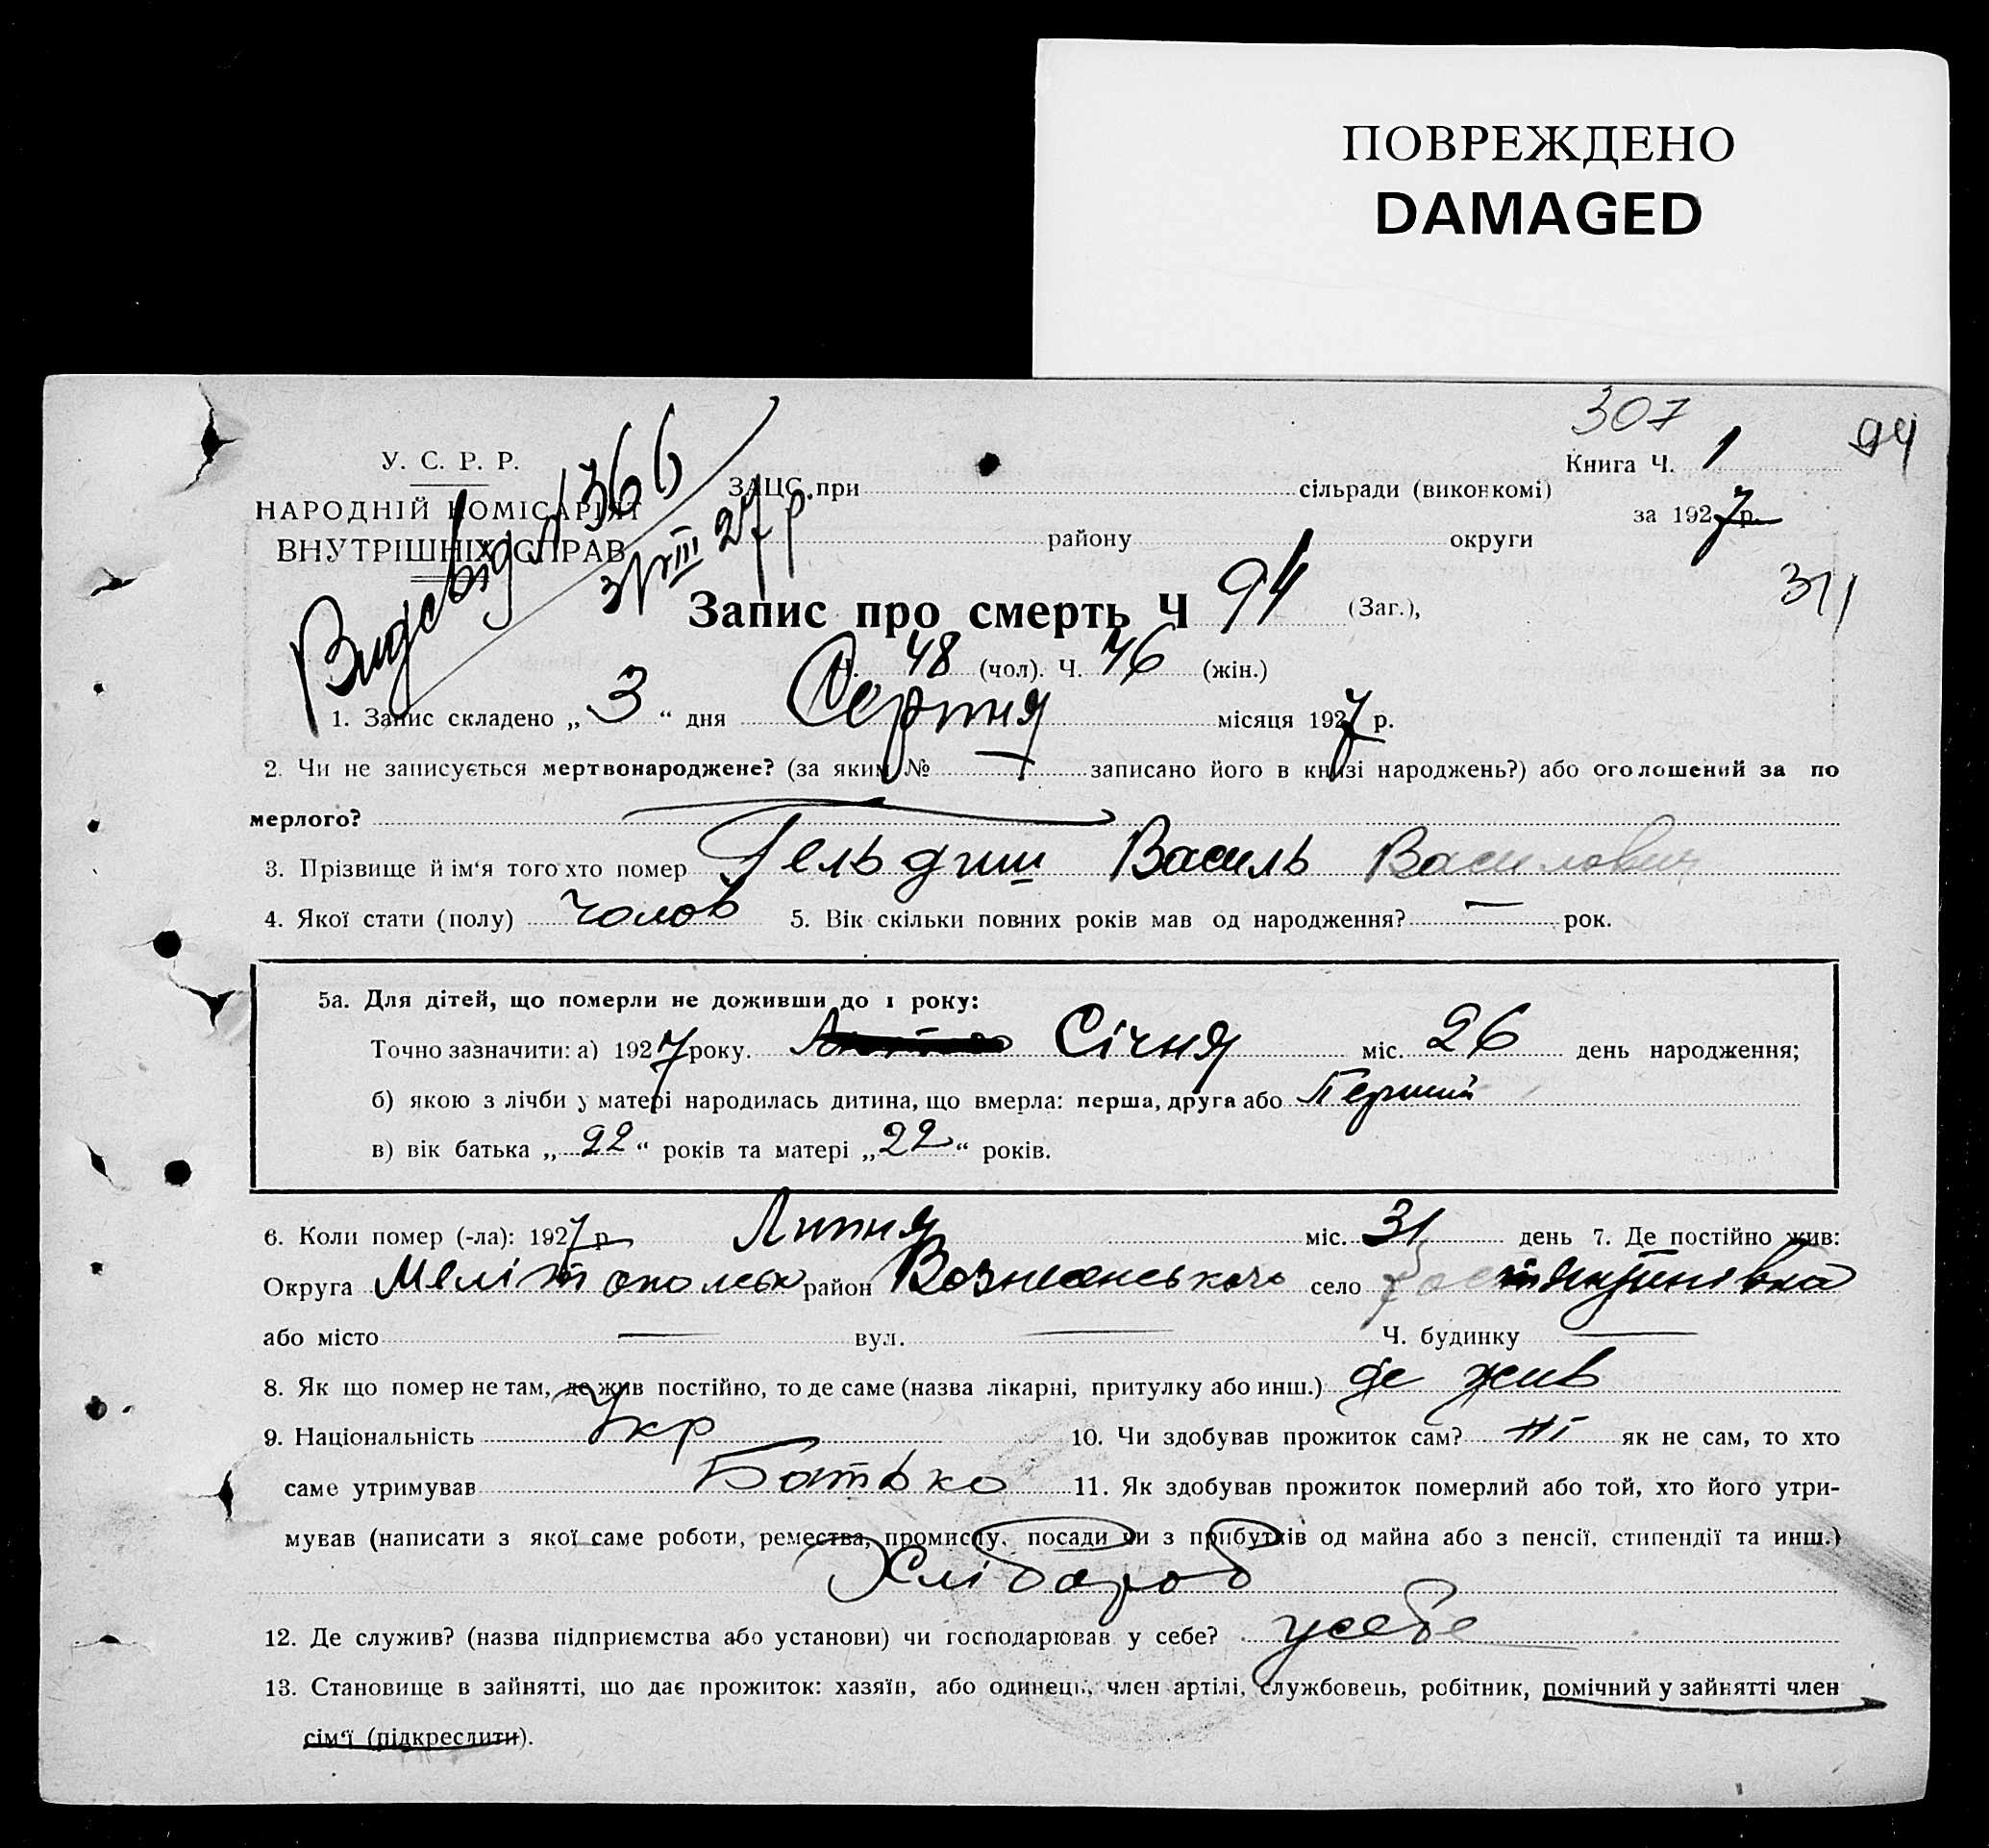 ПОВРЕЖДЕНО
DAMAGED
307
94
У. С. Р. Р.
Книга Ч. 1
НАРОДНІЙ КОМІСАРІЯТ
ВНУТРІШНІХ СПРАВ
ЗАЦС при сільради (виконкомі)
за 1927 р.
району округи
366
3/VIII 27 р
311
Запис про смерть Ч 94 (Заг.),
48 (чол). Ч. 46 (жін.)
1. Запис складено „ 3 “ дня Серпня місяця 1927 р.
2. Чи не записується мертвонароджене? (за яким № — записано його в книзі народжень?) або оголошений за по
мерлого?
3. Прізвище й ім‘я того хто помер Гельдиш Василь Василович
4. Якої стати (полу) Чолов 5. Вік скільки повних років мав од народження? — рок.
5а. Для дітей, що померли не доживши до 1 року:
Точно зазначити: а) 1927 року. Січня міс. 26 день народження;
б) якою з лічби у матері народилась дитина, що вмерла: перша, друга або Перший
в) вік батька „ 22 “ років та матері „ 22 “ років.
6. Коли помер (-ла): 1927 р Липня міс. 31 день 7. Де постійно жив:
Округа Мелітопольськ район Вознесенського село
або місто — вул. — Ч. будинку —
8. Як що помер не там, де жив постійно, то де саме (назва лікарні, притулку або инш.) де жив
9. Національність Укр 10. Чи здобував прожиток сам? ні як не сам, то хто
саме утримував Батько 11. Як здобував прожиток померлий або той, хто його утри-
мував (написати з якої саме роботи, ремества, промислу, посади чи з прибутків од майна або з пенсії, стипендії та инш.)
Хлібороб
12. Де служив? (назва підприємства або установи) чи господарював у себе? у себе
13. Становище в зайнятті, що дає прожиток: хазяїн, або одинець, член артілі, службовець, робітник, помічний у зайнятті член
сім‘ї (підкреслити).